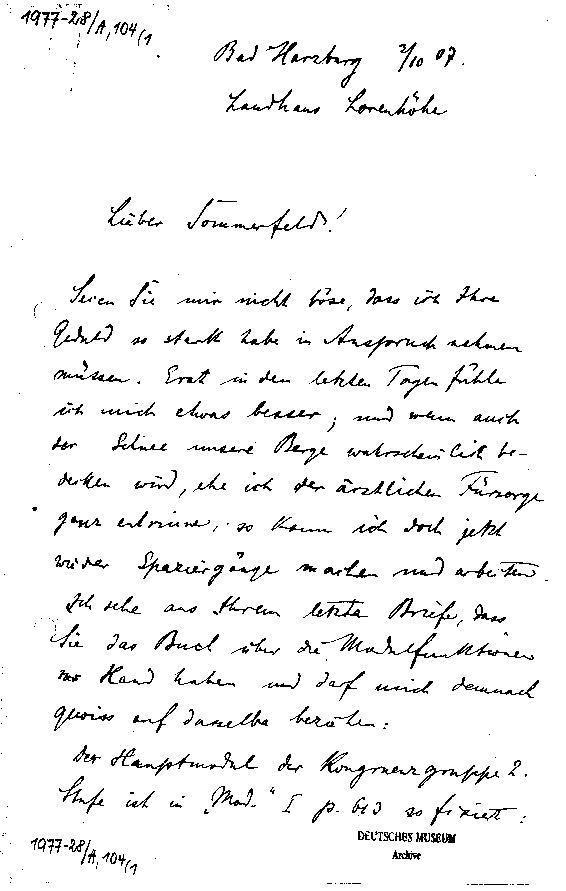 1977-28/A,104(1
Bad Harzburg 2/10 07.
Landhaus Lorenhöhe
Lieber Sommerfeld!
Seien Sie mir nicht böse, dass ich Ihre
Geduld so stark habe in Anspruch nehmen
müssen. Erst in den letzten Tagen fühle
ich mich etwas besser; und wenn auch
der Schnee unsere Berge wahrscheinlich be-
decken wird, ehe ich der ärztlichen Fürsorge
ganz entrinne, so kann ich doch jetzt
wieder Spaziergänge machen und arbeiten.
Ich sehe aus Ihrem letzten Briefe, dass
Sie das Buch über die Modulfunktionen
zur Hand haben und darf mich demnach
gewiss auf dasselbe beziehen:
Der Hauptmodul der Kongruenzgruppe 2.
Stufe ist in „Mod.“ I p. 613 so fixiert:
DEUTSCHES MUSEUM
Archive
1977-28/A,104(1